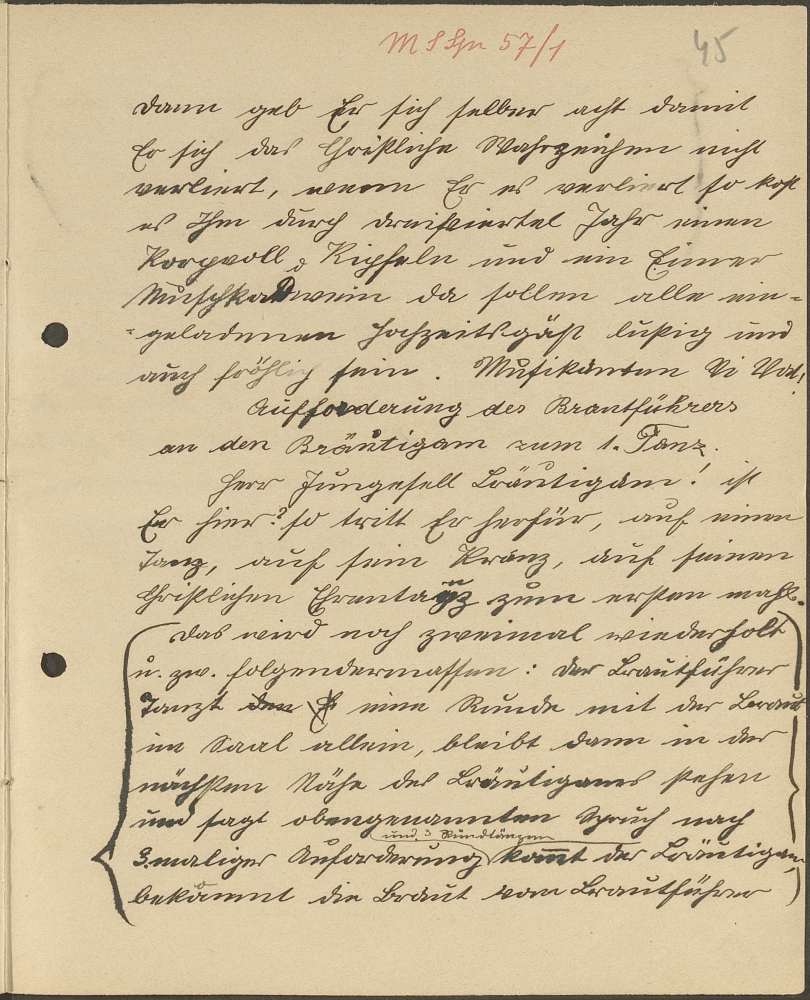 45
dann geb Er sich selber acht damit
Er sich das Christliche Wahrzeichen nicht
verliert, wenn Er es verliert so kost
es Ihm durch dreifiertel Jahr einen
Korpvoll Kipfeln und ein Eimer
Muschkadwein da sollen alle ein=
=geladenen Hochzeitsgäst lustig und
auch fröhlig sein. Musikanten Vi Vat!
Aufforderung des Brautführers
an den Bräutigam zum 1. Tanz.
Herr Jungesell Bräutigam! ist
Er hier? so tritt Er herfür, auf einen
Tanz, auf sein Kranz, auf seinen
Christlichen Ehrentanz zum ersten mahl.
Das wird noch zweimal wiederholt
u. zw. folgendermassen: Der Brautführer
Tanzt den eine Runde mit der Braut
im Saal allein, bleibt dann in der
nächsten Nähe des Bräutigams stehen
und sagt obengenannten Spruch nach
und 3 Rundtänzen
3.maliger Auforderung kommt der Bräutigam,
bekommt die Braut vom Brautführer